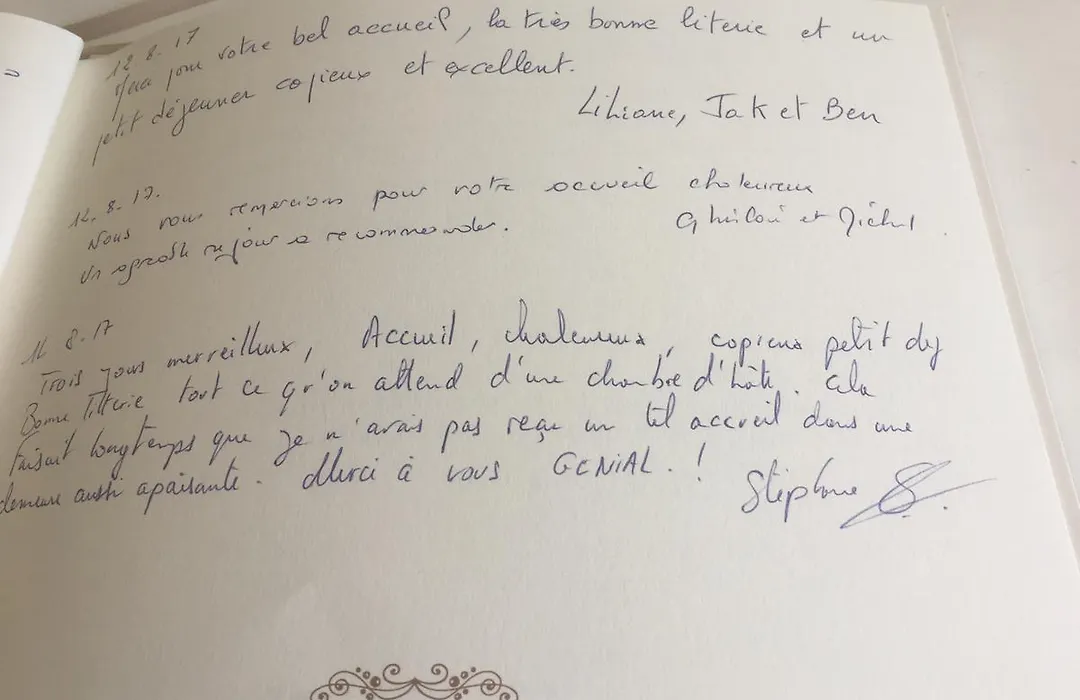 12 8. 17
pour votre bel accueil, la très bonne literie et un
petit déjeuner copieux et excellent.
Liliane, Jak et Ben
12. 8. 17.
Nous vous remercions pour votre accueil chaleureux
Un agreable sejour a recommander.
et Michel.
8. 17
Trois jours merveilleux, Accueil, chaleureux, copieux petit dej
Bonne litterie tout ce qu'on attend d'une chambre d'hôte. Cela
faisait longtemps que je n'avais pas reçu un tel accueil dans une
demeure aussi apaisante. Merci à vous GENIAL. !
Stéphane